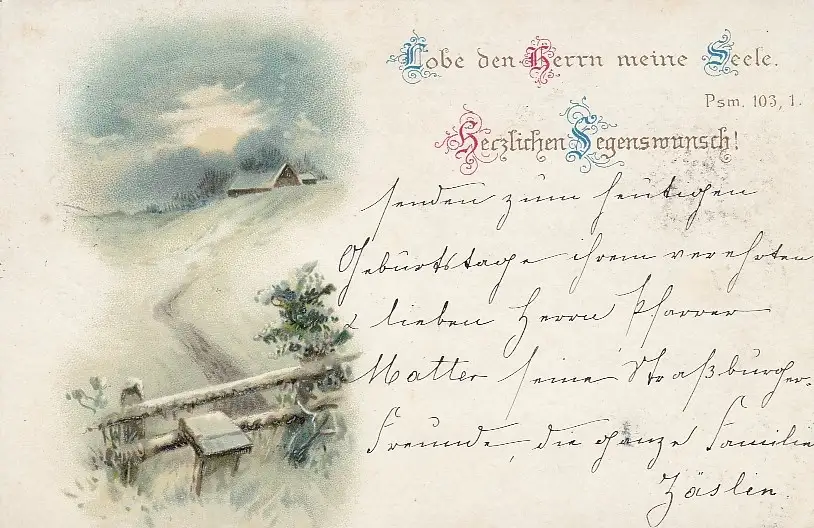 Lobe den Herrn meine Seele.
Psm. 103, 1.
Herzlichen Segenswunsch!
senden zum heutigen
Geburtstage ihrem verehrten
& lieben Herrn Pfarrer
Matter seine Straßburger-
Freunde, die ganze Familie
Zäslin.